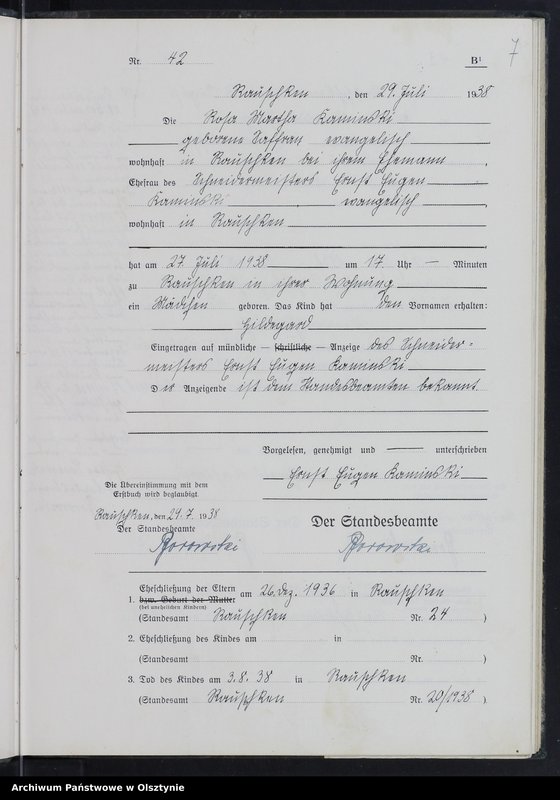 7
Nr. 42 B¹
Rauschken, den 29. Juli 1938
Die Rosa Martha Kaminski
geborene Saffran evangelisch
wohnhaft in Rauschken bei ihrem Ehemann,
Ehefrau des Schneidermeisters Ernst Eugen
Kaminski, evangelisch,
wohnhaft in Rauschken
hat am 27. Juli 1938 um 17 Uhr — Minuten
zu Rauschken in ihrer Wohnung
ein Mädchen geboren. Das Kind hat den Vornamen erhalten:
Hildegard
Eingetragen auf mündliche — schriftliche — Anzeige des Schneider-
meisters Ernst Eugen Kaminski
Der Anzeigende ist dem Standesbeamten bekannt.
Vorgelesen, genehmigt und — unterschrieben
Ernst Eugen Kaminski
Die Übereinstimmung mit dem
Erstbuch wird beglaubigt
Rauschken, den 29. 7. 1938
Der Standesbeamte
Borowski
Der Standesbeamte
Borowski
Eheschließung der Eltern am 26. Dez. 1936 in Rauschken
1. bzw. Geburt der Mutter
(bei unehelichen Kindern)
(Standesamt Rauschken Nr. 24 )
2. Eheschließung des Kindes am in
(Standesamt Nr. )
3. Tod des Kindes am 3. 8. 38 in Rauschken
(Standesamt Rauschken Nr. 20/1938 )
Archiwum Państwowe w Olsztynie